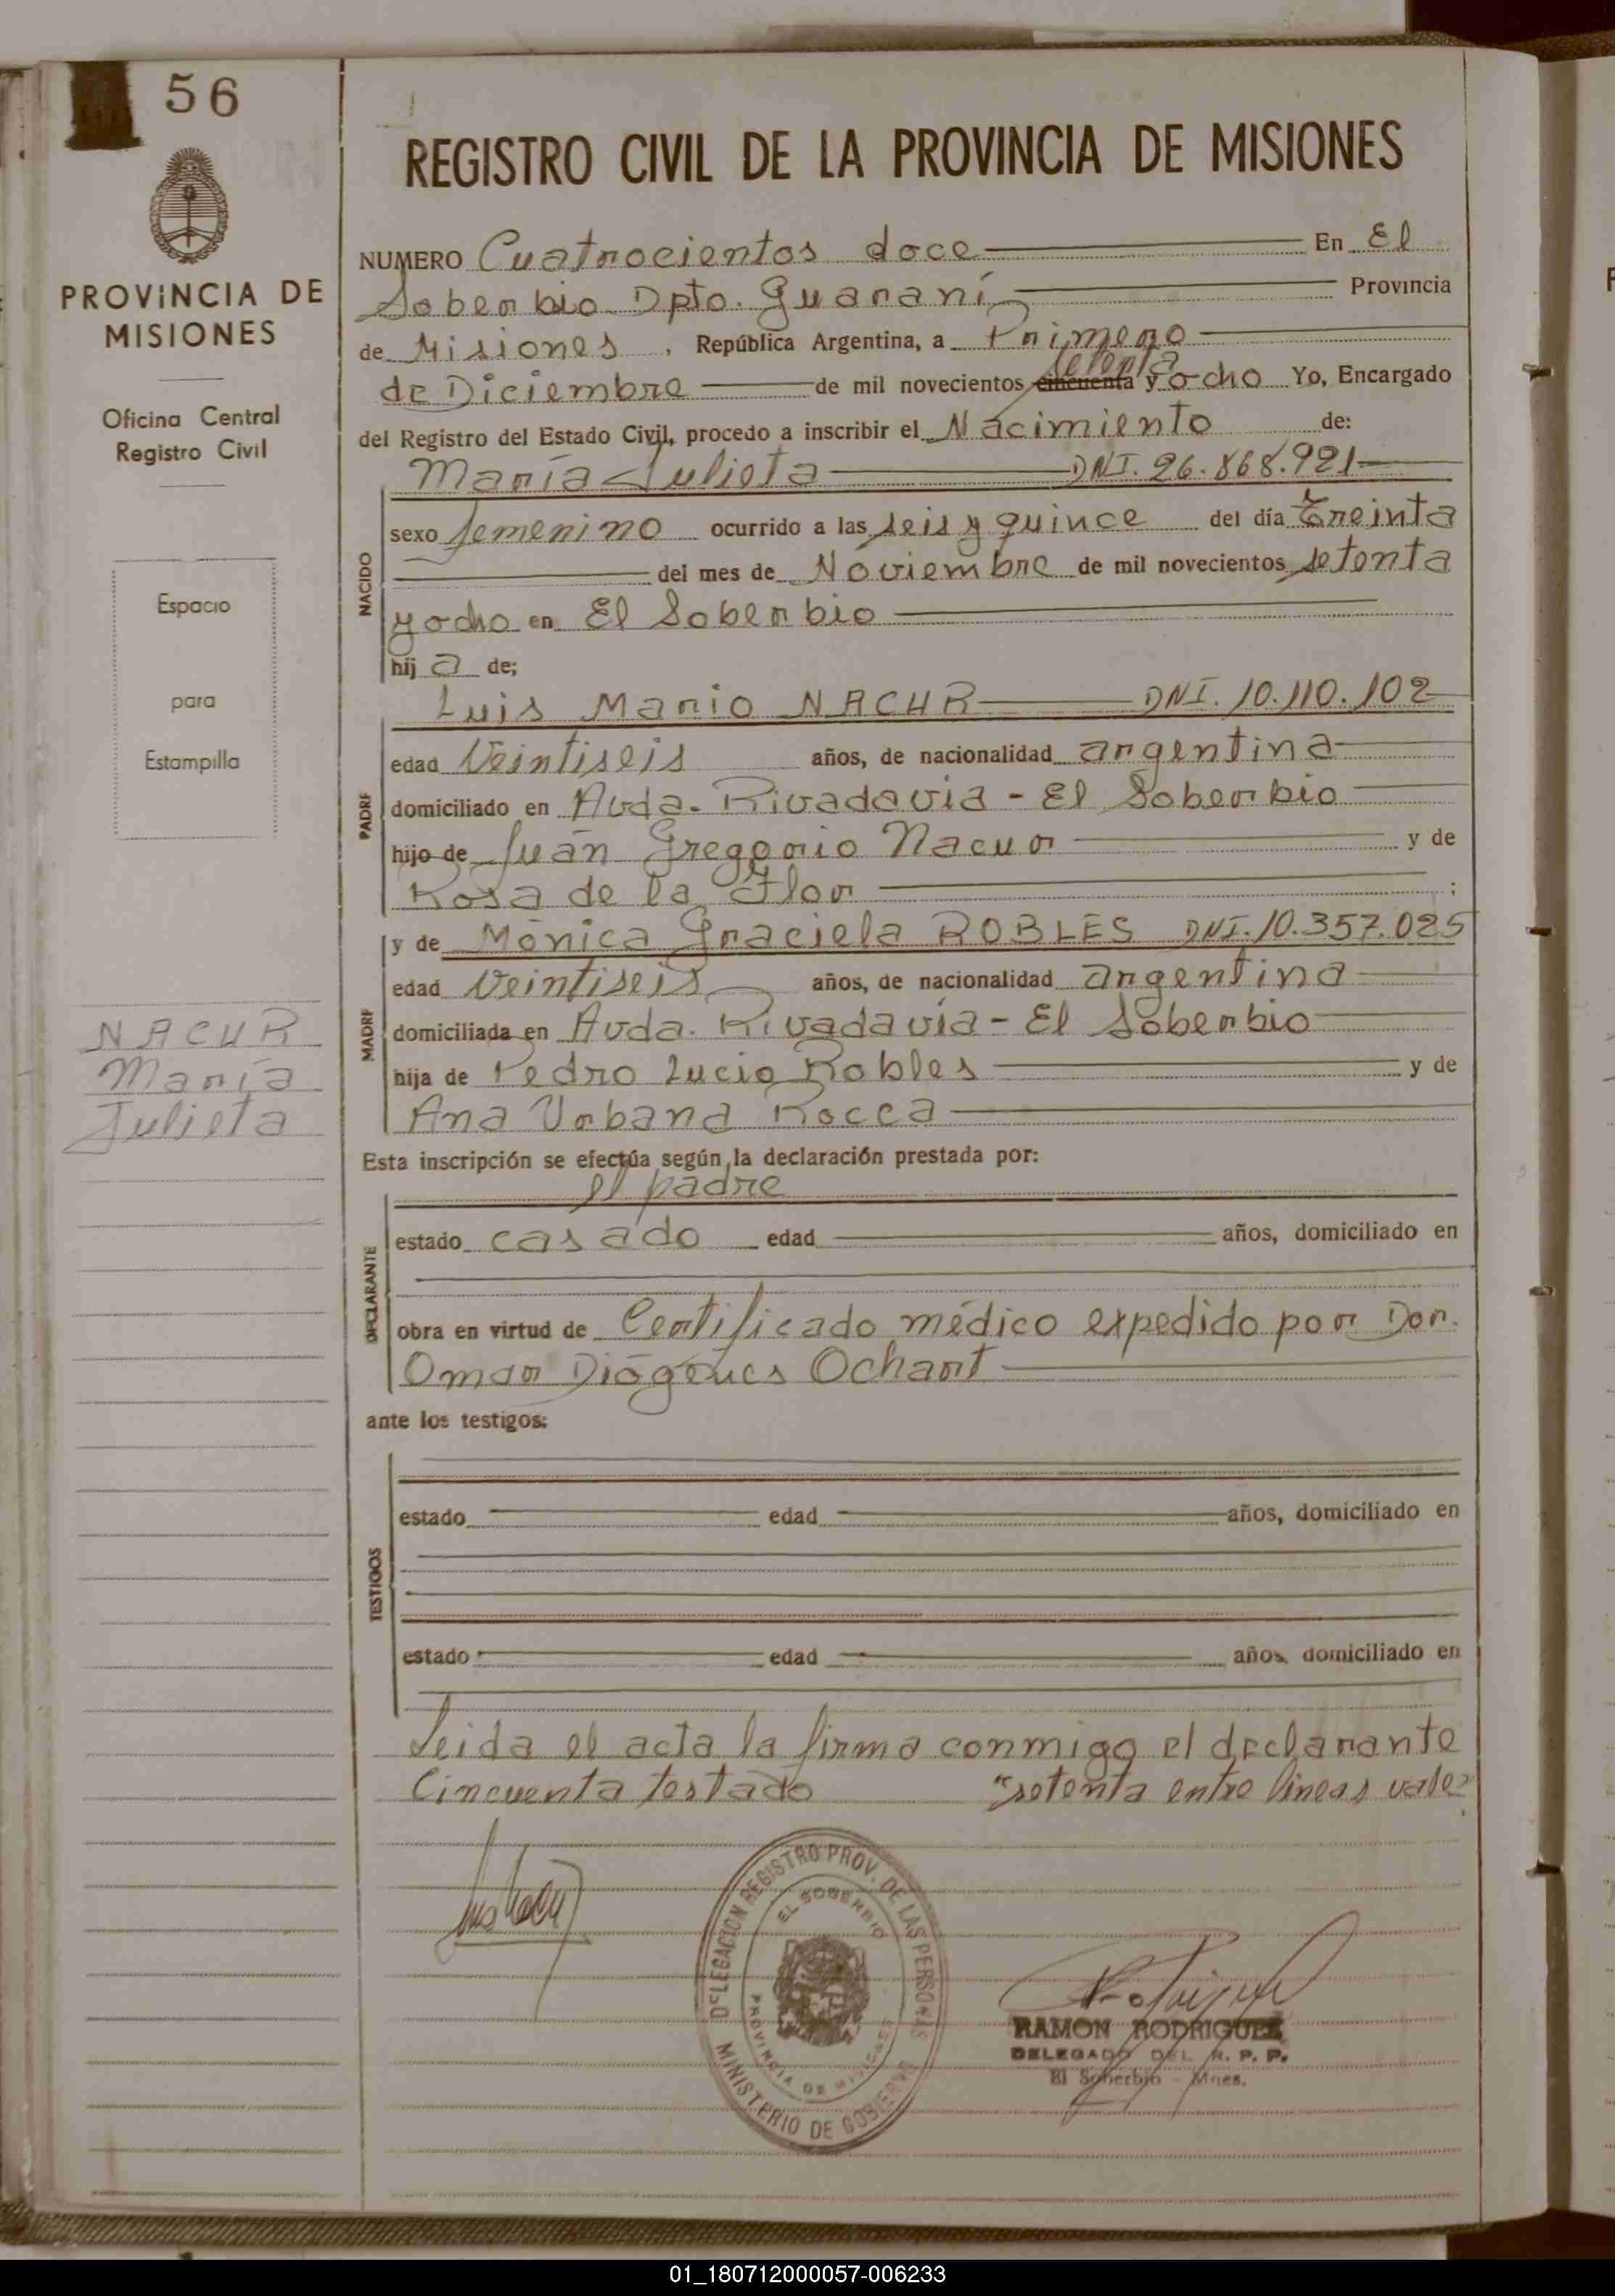 56
PROVINCIA DE
MISIONES
Oficina Central
Registro Civil
Espacio
para
Estampilla
NACUR
María
Julieta
REGISTRO CIVIL DE LA PROVINCIA DE MISIONES
NUMERO Cuatrocientos doce En El
Soberbio Dpto. Guaraní Provincia
de Misiones, República Argentina, a Primero
setenta
de Diciembre de mil novecientos cincuenta y ocho Yo, Encargado
del Registro del Estado Civil, procedo a inscribir el Nacimiento de:
María Julieta DNI. 26.868.921
NACIDO
sexo femenino ocurrido a las seis y quince del día Treinta
del mes de Noviembre de mil novecientos setenta
y ocho en El Soberbio
hij a de;
Luis Mario NACUR DNI. 10.110.102
PADRE
edad Veintiseis años, de nacionalidad argentina
domiciliado en Avda. Rivadavia - El Soberbio
hijo de Juan Gregorio Nacur y de
Rosa de la Flor ;
y de Mónica Graciela ROBLES DNI. 10.357.025
MADRE
edad Veintiseis años, de nacionalidad argentina
domiciliada en Avda. Rivadavia - El Soberbio
hija de Pedro Lucio Robles y de
Ana Urbana Rocca
Esta inscripción se efectúa según la declaración prestada por:
el padre
DECLARANTE
estado casado edad años, domiciliado en
obra en virtud de Certificado médico expedido por Dor.
Omar Diógenes Ochart
ante los testigos:
TESTIGOS
estado edad años, domiciliado en
estado edad años, domiciliado en
Leida el acta la firma conmigo el declarante
Cincuenta testado "setenta entre líneas vale"
DELEGACION REGISTRO PROV. DE LAS PERSONAS
EL SOBERBIO
PROVINCIA DE MISIONES
MINISTERIO DE GOBIERNO
RAMON RODRIGUEZ
DELEGADO DEL R. P. P.
El Soberbio - Mnes.
01_180712000057-006233